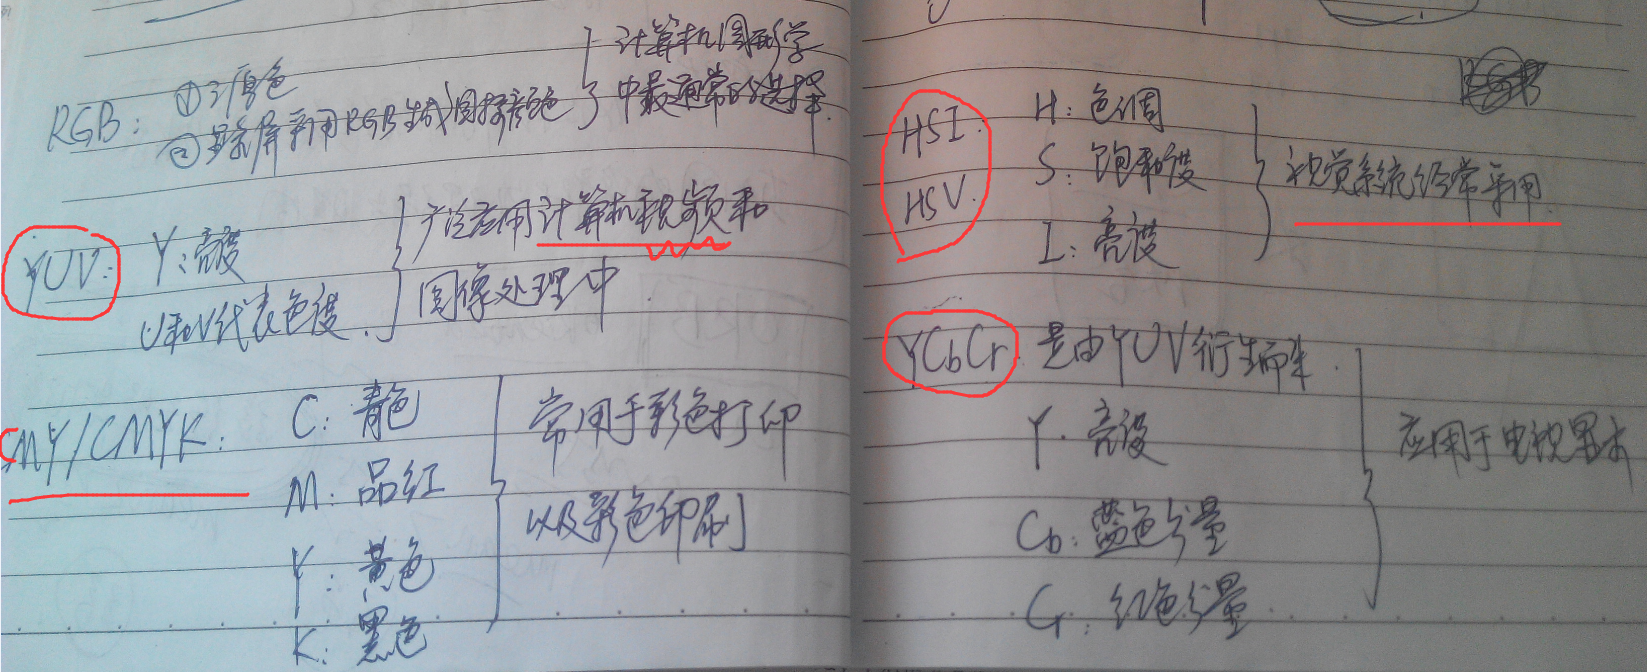 RGB: ① 三原色
② 显示屏采用RGB生成图接颜色
计算机图形学
中最通常的选择.
YUV: Y: 亮度
U和V代表色度.
广泛应用计算机视频和
图像处理中.
CMY/CMYK:
C: 青色
M: 品红
Y: 黄色
K: 黑色
常用于彩色打印
以及彩色印刷
HSI.
HSV.
H: 色调
S: 饱和度
I: 亮度
视觉系统经常采用.
YCbCr. 是由YUV衍生而来.
Y. 亮度
Cb: 蓝色分量
Cr: 红色分量
应用于电视显示